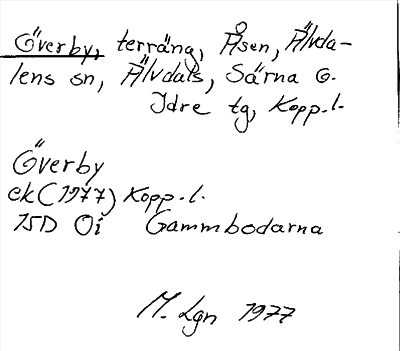 Överby, terräng, Åsen, Älvda-
lens sn, Älvdals, Särna o.
Idre tg, Kopp.l.
Överby
ek (1977) Kopp.l.
15D 0i Gammbodarna
M. Lgn 1977